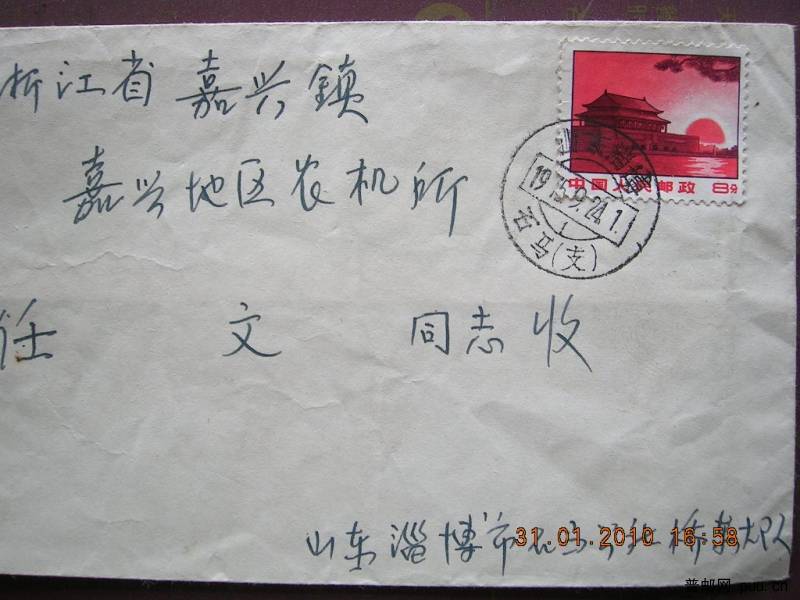 浙江省 嘉兴镇
嘉兴地区农机所
任 文 同志 收
中国人民邮政 8分
石马(支)
山东淄博市
31.01.2010 16:58
普邮网 puu.cn